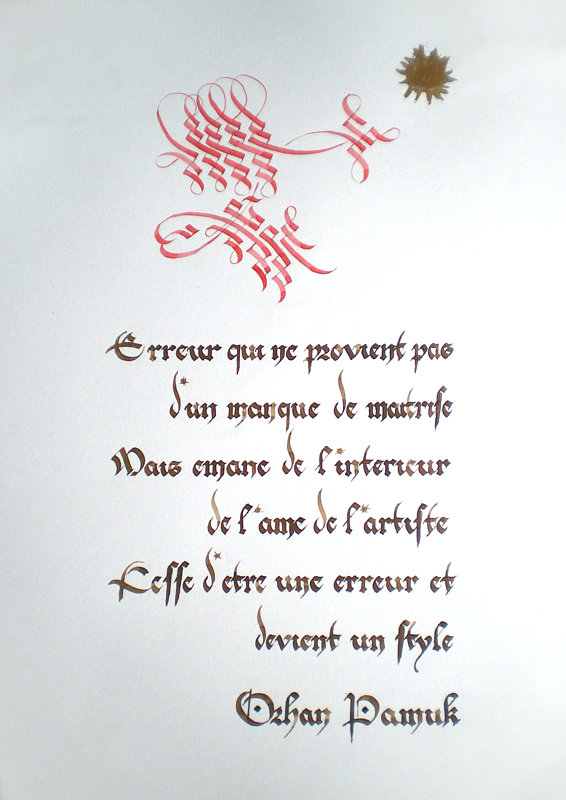 Erreur qui ne provient pas
d'un manque de maitrise
Mais emane de l'interieur
de l'ame de l'artiste
Cesse d'etre une erreur et
devient un style
Orhan Pamuk